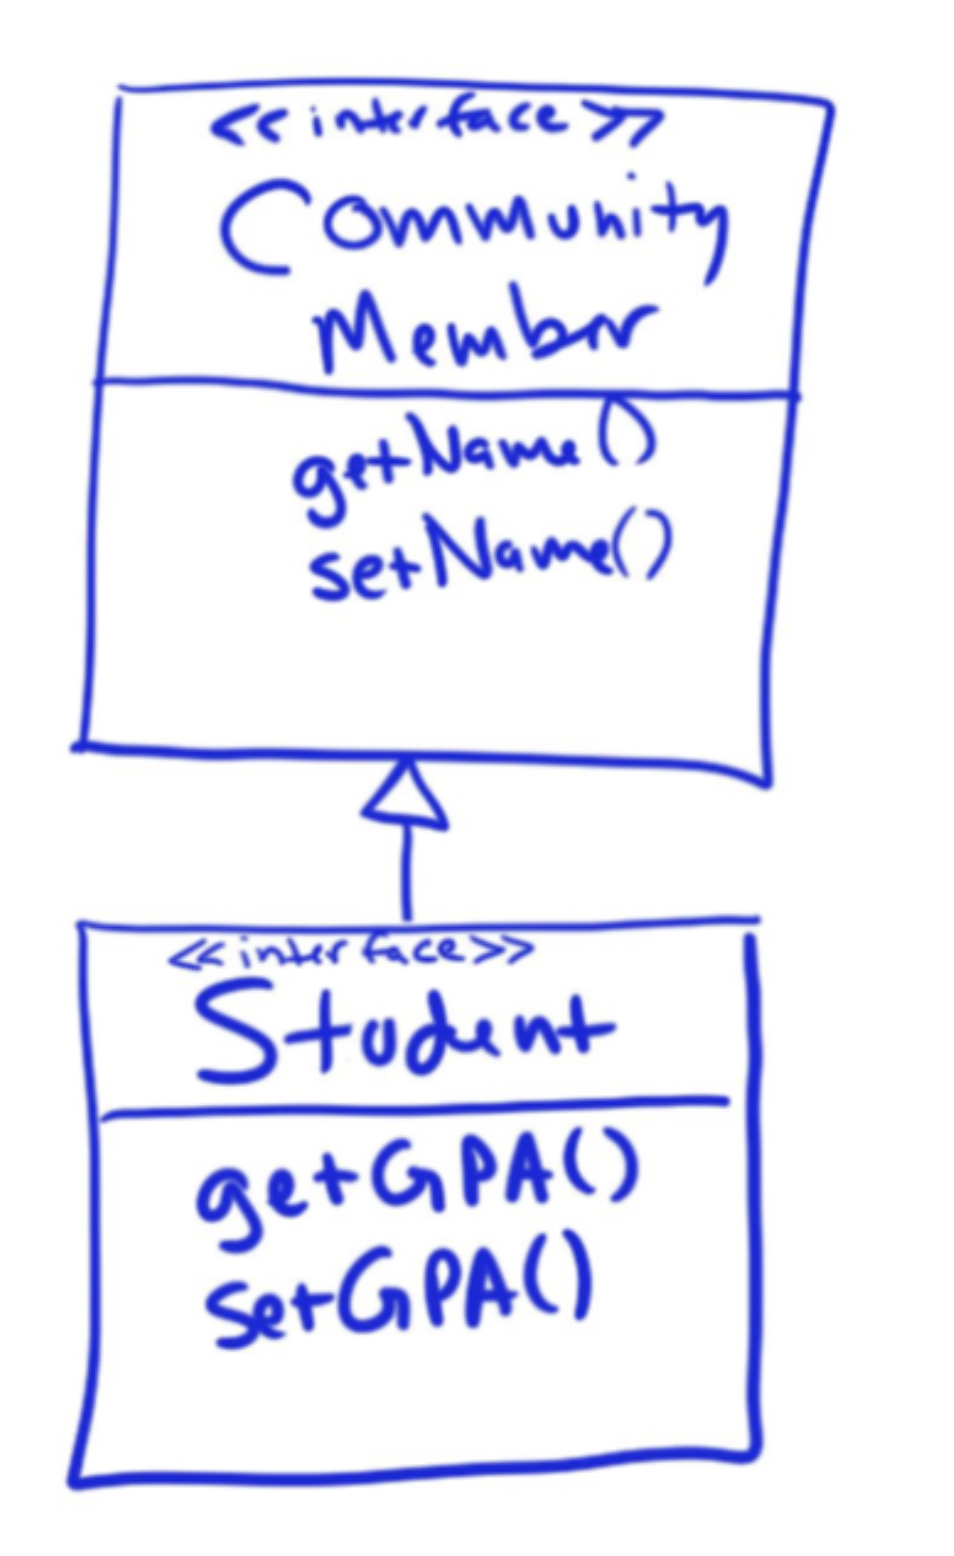 <<interface>>
Community
Member
getName()
setName()
<<interface>>
Student
getGPA()
setGPA()